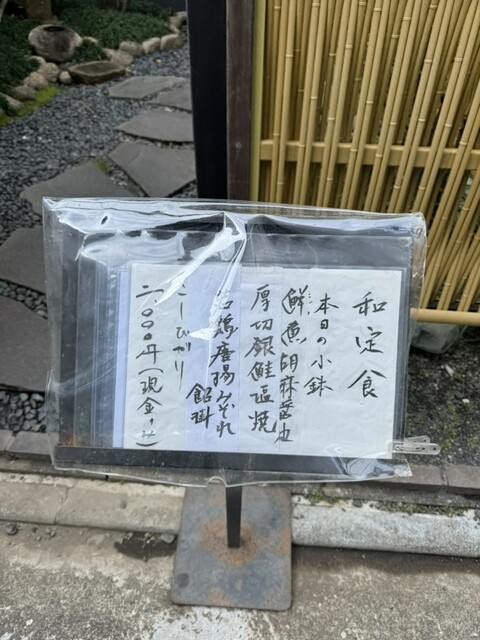 和定食
本日の小鉢
鮮魚胡麻醤油
厚切銀鮭塩焼
若鶏唐揚みぞれ
餡掛
こしひかり
二、〇〇〇円(現金のみ)